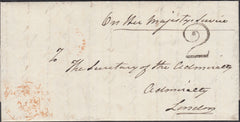 On Her Majesty's Service
2
To
The Secretary of the Admiralty
Admiralty
London